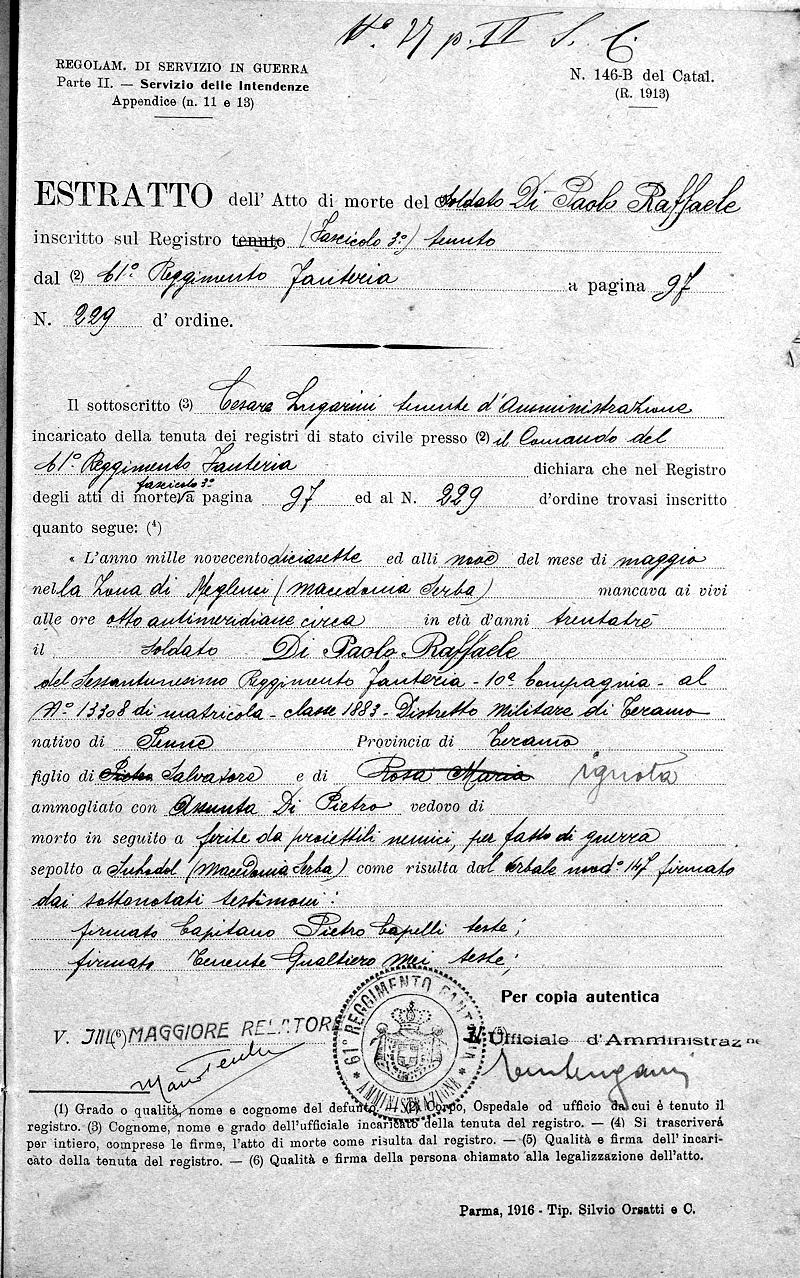 Nº 27 p. II S. C.
REGOLAM. DI SERVIZIO IN GUERRA
Parte II. — Servizio delle Intendenze
Appendice (n. 11 e 13)
N. 146-B del Catal.
(R. 1913)
ESTRATTO dell' Atto di morte del soldato Di Paolo Raffaele
inscritto sul Registro tenuto (Fascicolo 3º) tenuto
dal (2) 61º Reggimento Fanteria a pagina 97
N. 229 d' ordine.
Il sottoscritto (3) Cesare Lugarini tenente d'Amministrazione
incaricato della tenuta dei registri di stato civile presso (2) il Comando del
61º Reggimento Fanteria dichiara che nel Registro
fascicolo 3º
degli atti di morte a pagina 97 ed al N. 229 d'ordine trovasi inscritto
quanto segue: (4)
« L'anno mille novecento diciasette ed alli nove del mese di maggio
nella Zona di Meglenci (Macedonia Serba) mancava ai vivi
alle ore otto antimeridiane circa in età d'anni trentatré
il soldato Di Paolo Raffaele
del Sessantunesimo Reggimento Fanteria - 10ª Compagnia - al
Nº 13308 di matricola - classe 1883 - Distretto Militare di Teramo
nativo di Penne Provincia di Teramo
figlio di Pietro Salvatore e di Rosa Maria ignota
ammogliato con Assunta Di Pietro vedovo di
morto in seguito a ferite da proiettili nemici, per fatto di guerra
sepolto a Suhodol (Macedonia Serba) come risulta dal verbale modº 147 firmato
dai sottonotati testimoni:
firmato Capitano Pietro Capelli teste;
firmato Tenente Gualtiero Mei teste;
Per copia autentica
V. IL (6) MAGGIORE RELATORE
L' (5) Ufficiale d'Amministrazne
61º REGGIMENTO FANTERIA
* AMMINISTRAZIONE *
(1) Grado o qualità, nome e cognome del defunto. — (2) Corpo, Ospedale od ufficio da cui è tenuto il
registro. (3) Cognome, nome e grado dell'ufficiale incaricato della tenuta del registro. — (4) Si trascriverà
per intiero, comprese le firme, l'atto di morte come risulta dal registro. — (5) Qualità e firma dell' incari-
cato della tenuta del registro. — (6) Qualità e firma della persona chiamato alla legalizzazione dell'atto.
Parma, 1916 - Tip. Silvio Orsatti e C.